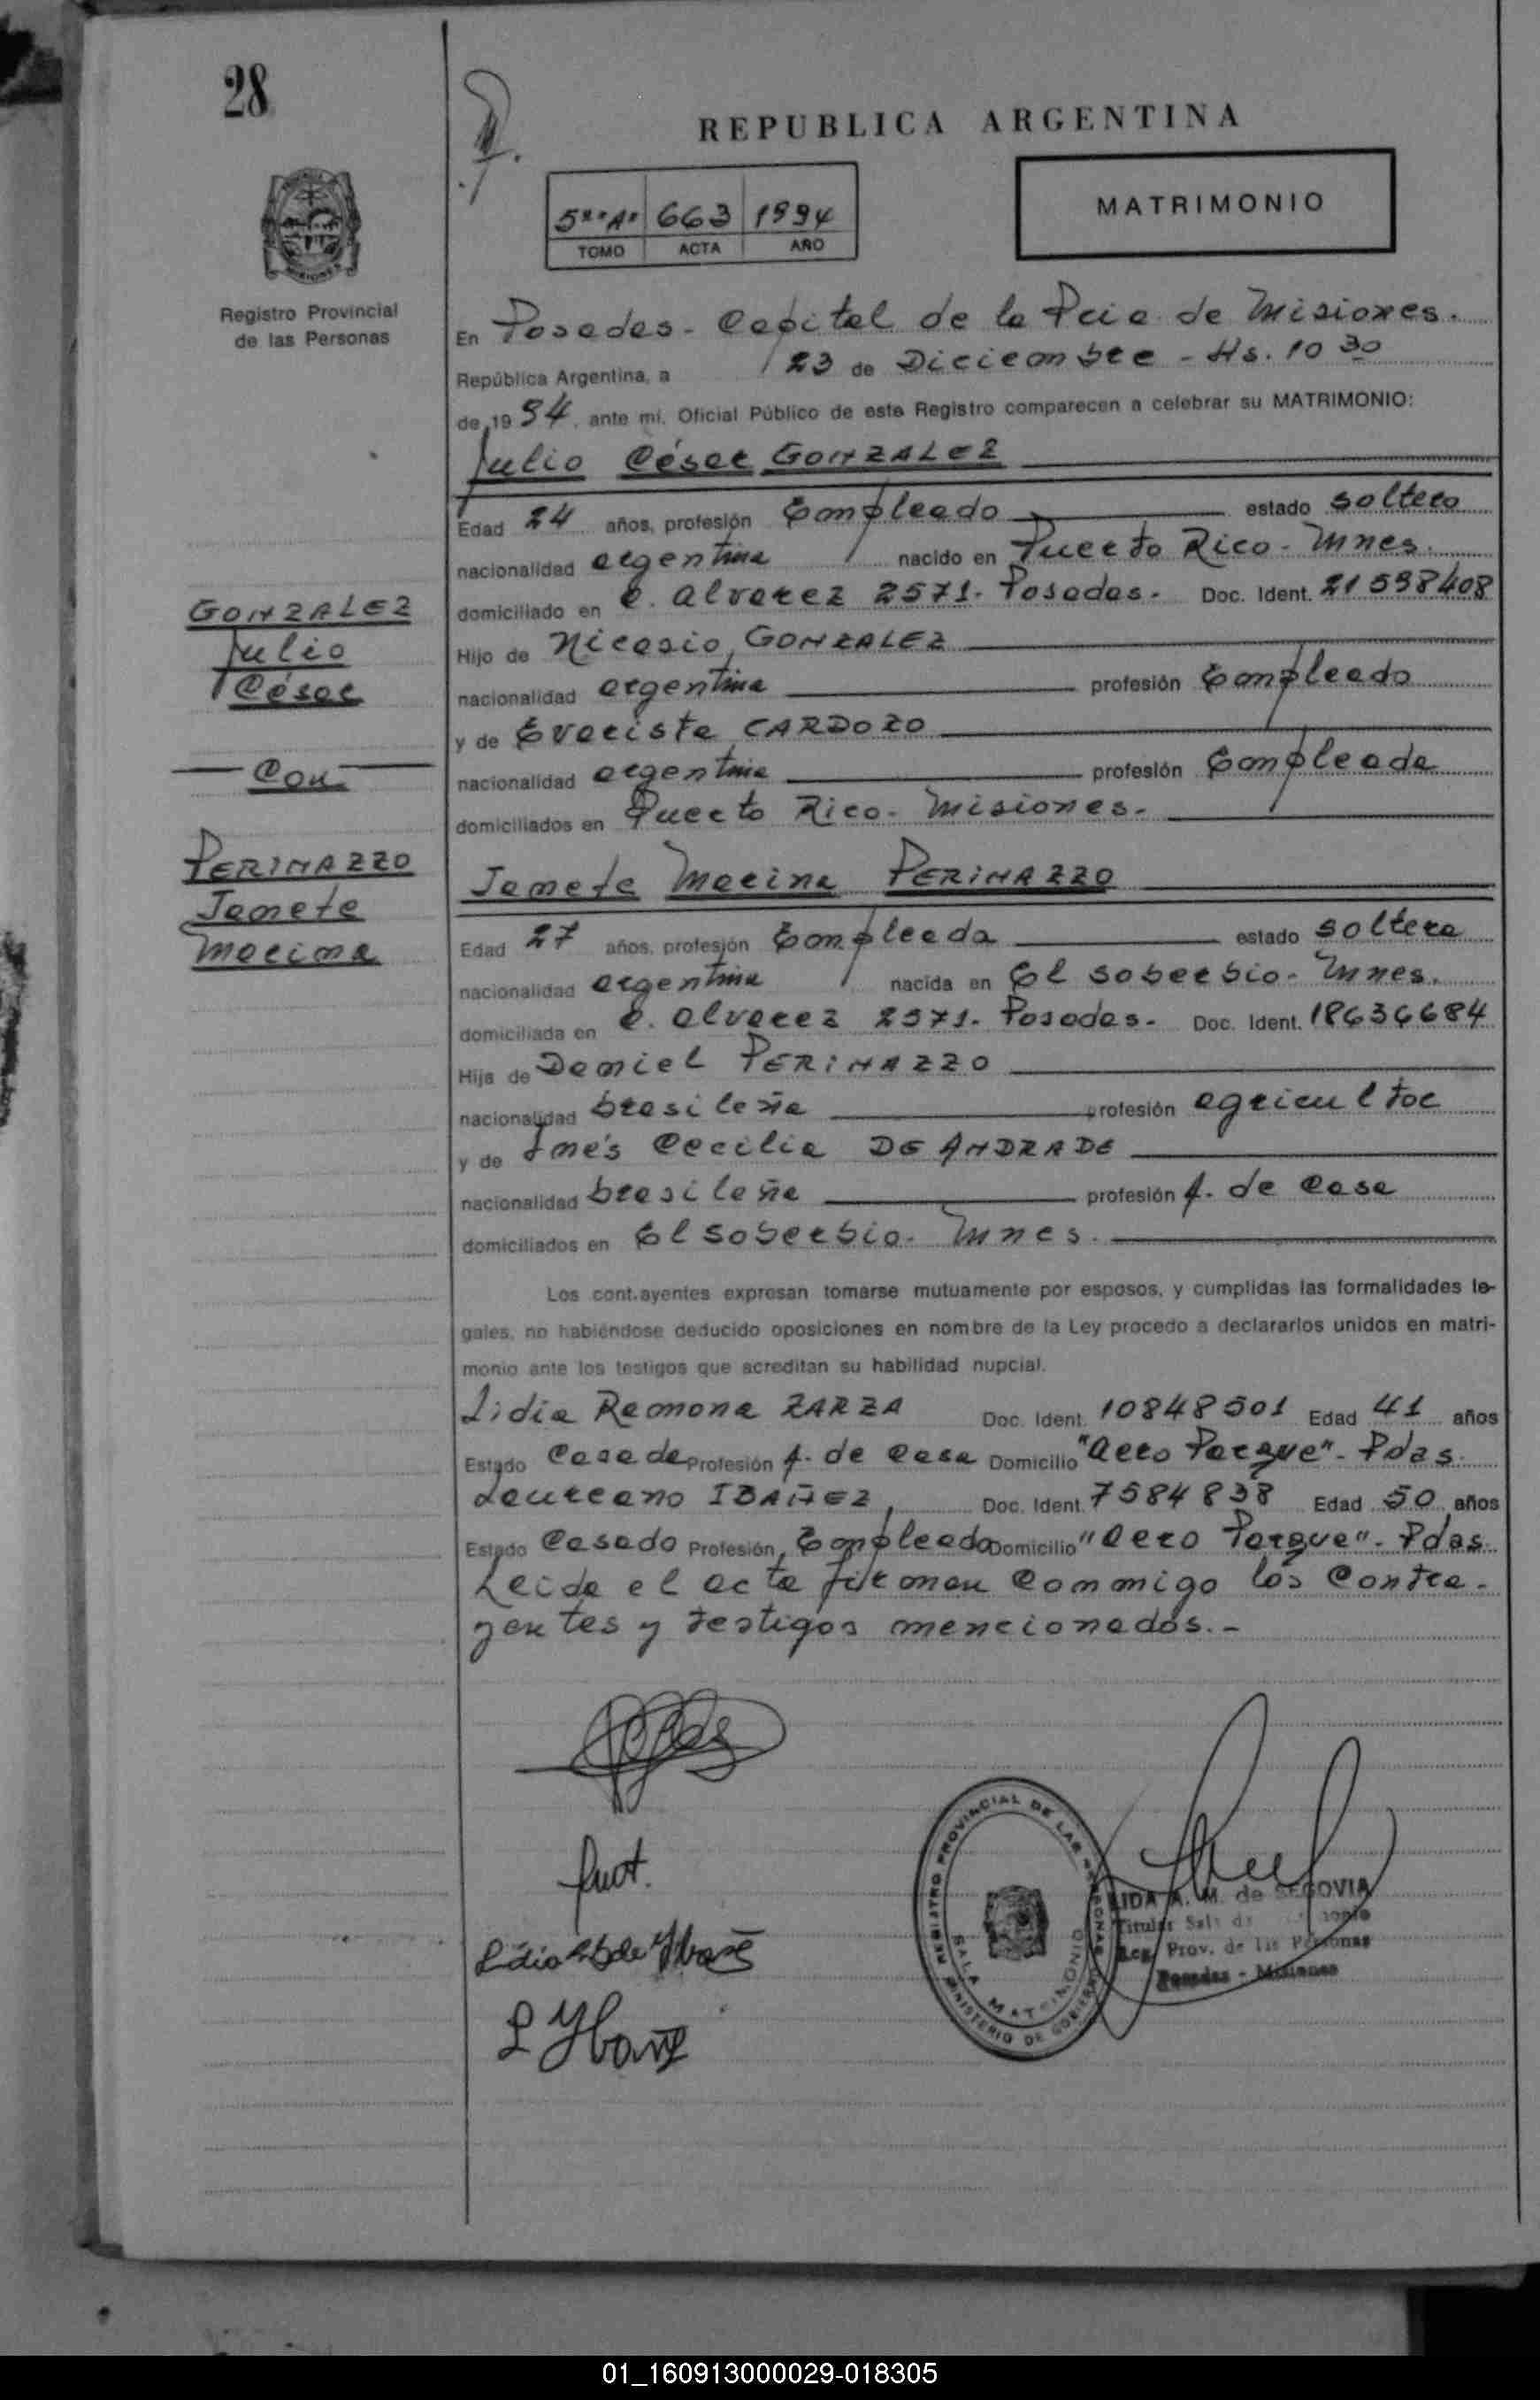 28
REPUBLICA ARGENTINA
663 1994
TOMO ACTA AÑO
MATRIMONIO
Registro Provincial
de las Personas
En Posadas - Capital de la Pcia de Misiones.
República Argentina, a 23 de Diciembre - Hs. 10 30
de 1994, ante mi, Oficial Público de este Registro comparecen a celebrar su MATRIMONIO:
Julio César GONZALEZ
Edad 24 años, profesión Empleado estado soltero
nacionalidad argentina nacido en Puerto Rico - Mnes.
domiciliado en C. Alvarez 2571 - Posadas - Doc. Ident. 21598408
Hijo de Nicasio GONZALEZ
nacionalidad argentina profesión Empleado
y de Evarista CARDOZO
nacionalidad argentina profesión Empleada
domiciliados en Puerto Rico - Misiones -
GONZALEZ
Julio
César
Con
PERINAZZO
Marina
Marina PERINAZZO
Edad 27 años, profesión Empleada estado soltera
nacionalidad argentina nacida en El Soberbio - Mnes.
domiciliada en C. Alvarez 2571 - Posadas - Doc. Ident. 18636684
Hija de Daniel PERINAZZO
nacionalidad brasileña profesión agricultor
y de Inés Cecilia DE ANDRADE
nacionalidad brasileña profesión A. de casa
domiciliados en El Soberbio - Mnes.
Los cont.ayentes expresan tomarse mutuamente por esposos, y cumplidas las formalidades le-
gales, no habiéndose deducido oposiciones en nombre de la Ley procedo a declararlos unidos en matri-
monio ante los testigos que acreditan su habilidad nupcial.
Lidia Ramona ZARZA Doc. Ident. 10848501 Edad 41 años
Estado Casada Profesión A. de casa Domicilio "Aero Parque" - Pdas.
Laureano IBAÑEZ, Doc. Ident. 7584838 Edad 50 años
Estado Casado Profesión Empleado Domicilio "Aero Parque" - Pdas.
Leida el acta firman conmigo los contra-
yentes y testigos mencionados. -
REGISTRO PROVINCIAL DE LAS PERSONAS
SALA MATRIMONIO
MINISTERIO DE GOBIERNO
LIDA A. M. de SEGOVIA
Titular Sala de
Reg. Prov. de las Personas
Posadas - Misiones
L Ybañez
01_160913000029-018305